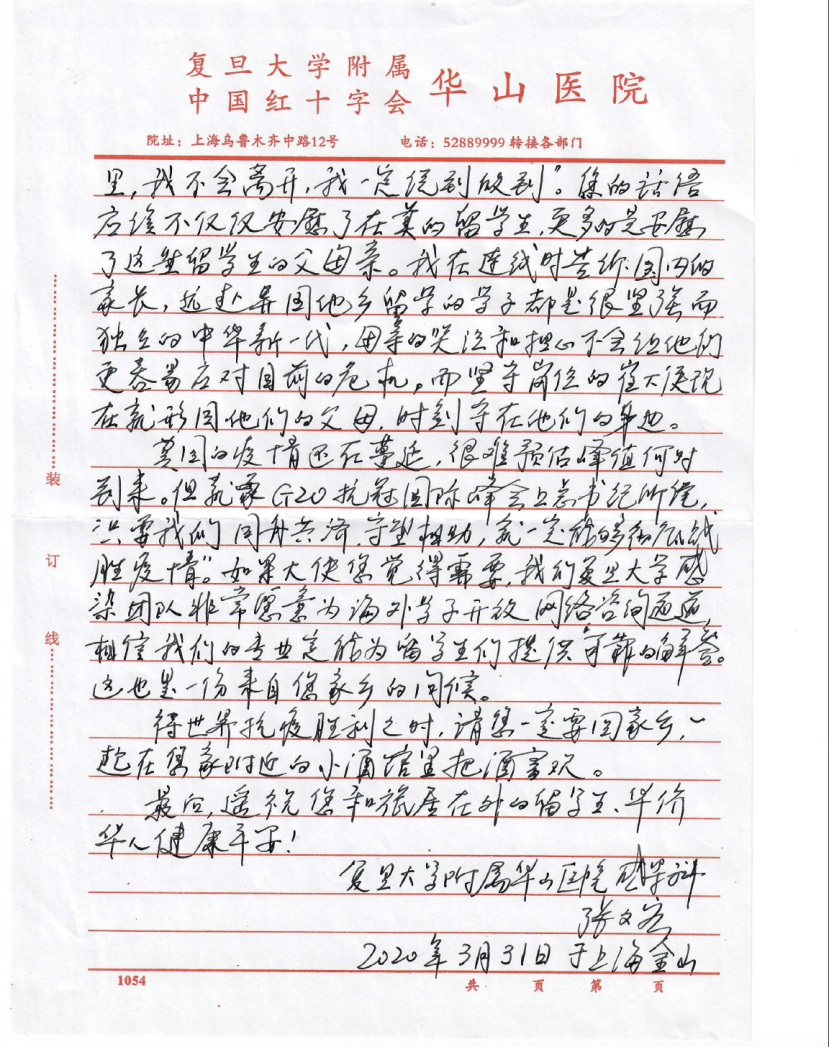 复旦大学附属
中国红十字会 华山医院
院址：上海乌鲁木齐中路12号 电话：52889999 转接各部门
里，我不会离开，我一定说到做到”。您的话语
应该不仅仅安慰了在英的留学生，更多的是安慰
了这些留学生的父母亲。我在连线时告诉国内的
家长，远赴异国他乡留学的学子都是很坚强而
独立的中华新一代，母亲的哭泣和担心不会让他们
更容易应对目前的危机，而坚守岗位的崔大使现
在就形同他们的父母，时刻守在他们的身边。
英国的疫情还在蔓延，很难预估峰值何时
到来。但就象G20抗冠国际峰会上总书记所说，
只要我们同舟共济、守望相助，就一定能够彻底战
胜疫情”。如果大使您觉得需要，我们复旦大学感
染团队非常愿意为海外学子开放网络咨询通道，
相信我们的专业定能为留学生们提供可靠的解答。
这也是一份来自您家乡的问候。
待世界抗疫胜利之时，请您一定要回家乡，一
起在您家附近的小酒馆里把酒言欢。
最后，遥祝您和旅居在外的留学生、华侨
华人健康平安！
复旦大学附属华山医院感染科
张文宏
2020年3月31日于上海金山
装
订
线
1054 共 页 第 页